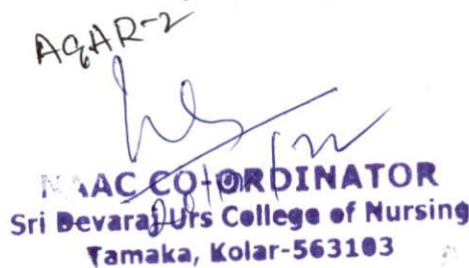 AQAR-2
NAAC CO-ORDINATOR
Sri Devaraj Urs College of Nursing
Tamaka, Kolar-563103